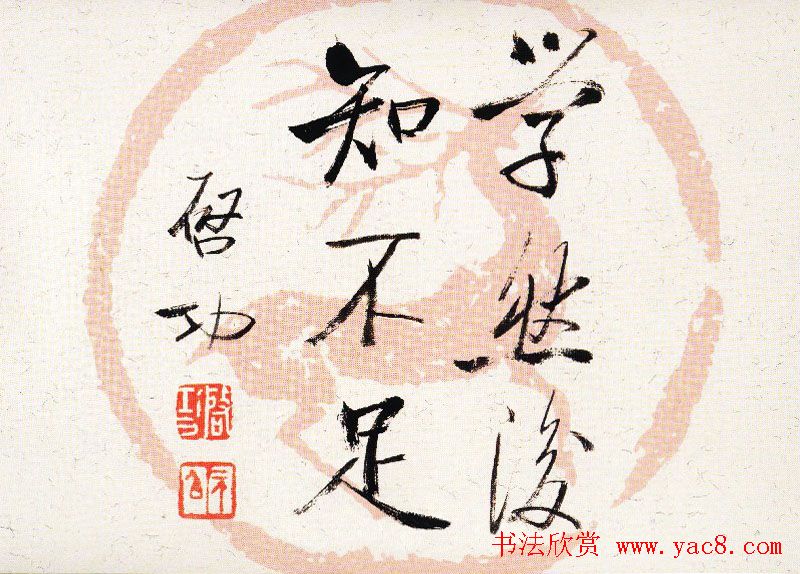 学然後
知不足
啓功
啓功
书法欣赏 www.yac8.com